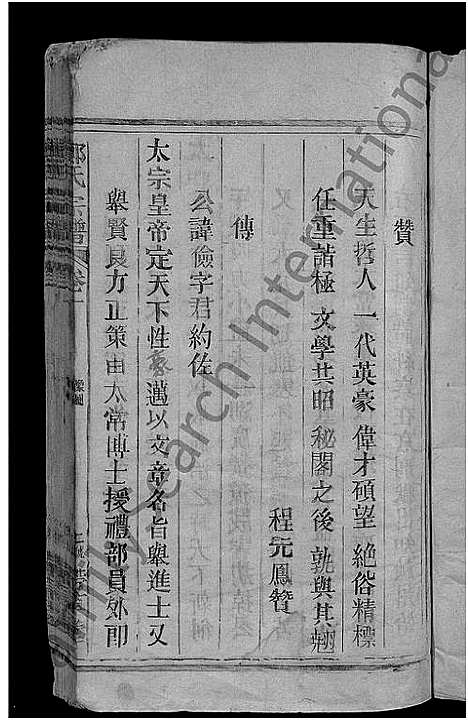 贊
天生哲人 一代英豪 偉才碩望 絶俗精標
任重詰極 文學共昭 秘閣之後 孰與其翹
程元鳳贊
傳
公諱儉字君約佐
太宗皇帝定天下性豪邁以文章名旨舉進士又
舉賢良方正策由太常博士援禮部員外即
鄭氏宗譜 卷一